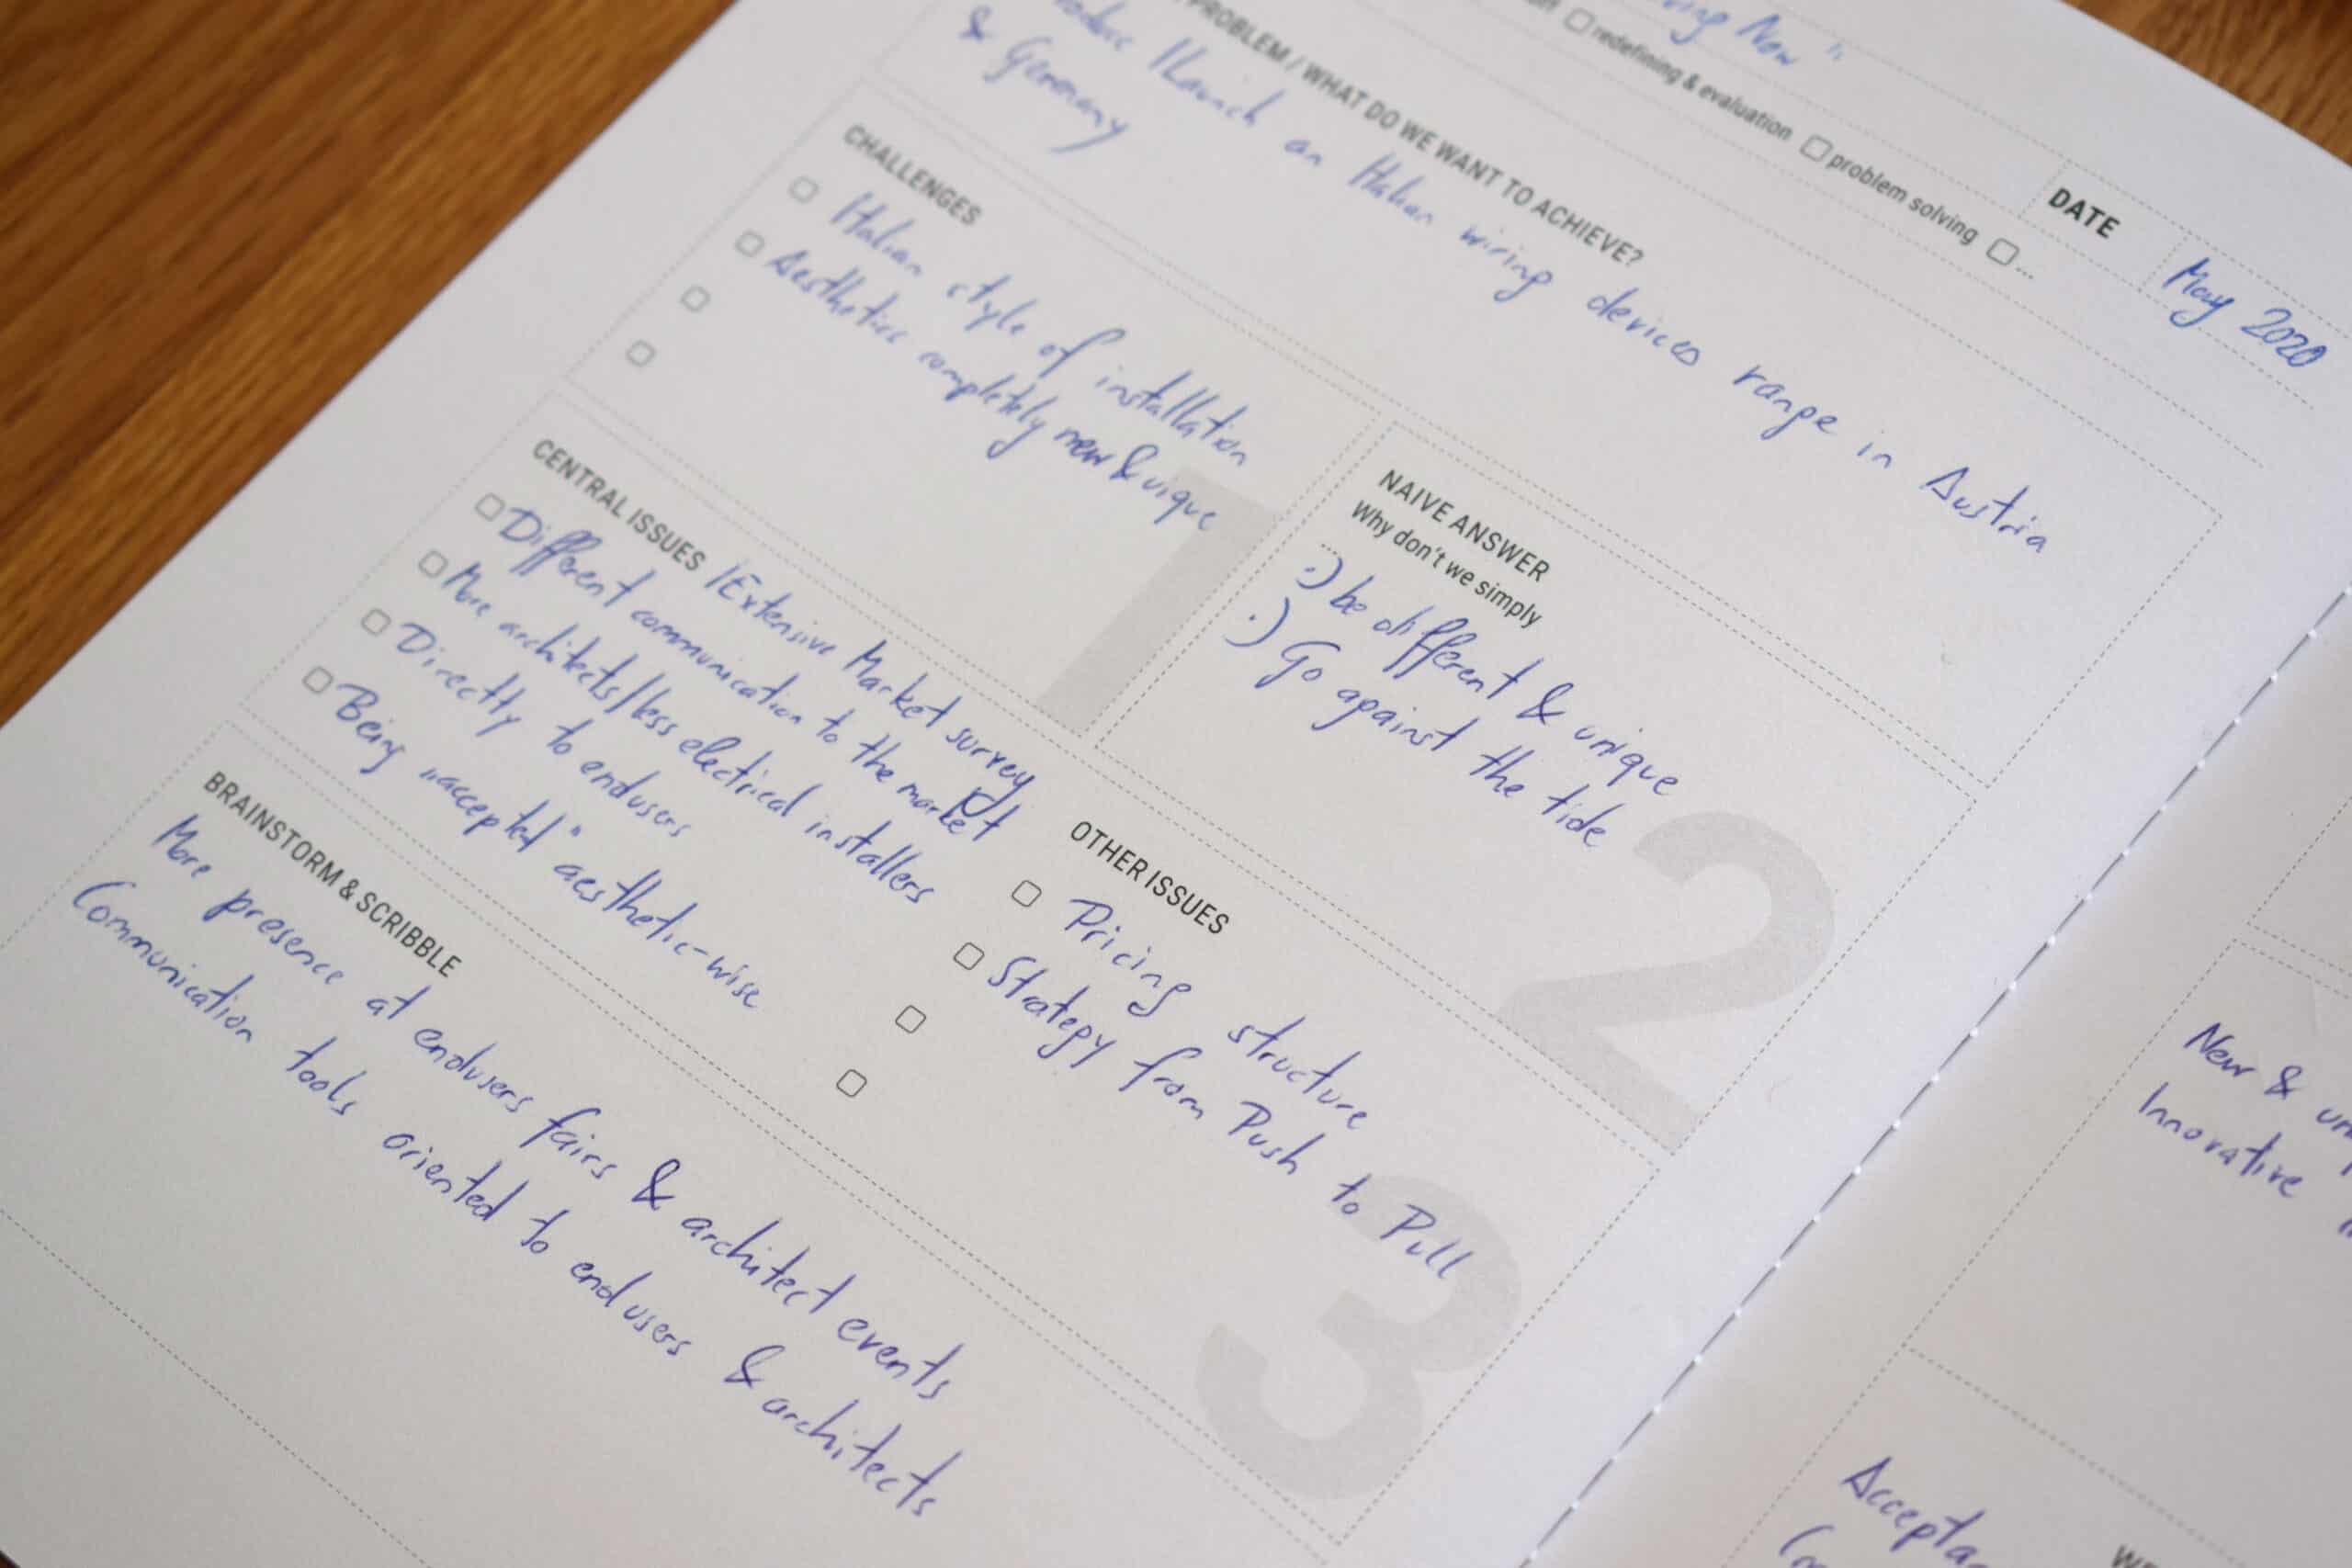 Now"
redefining & evaluation
problem solving
...
DATE
May 2020
PROBLEM / WHAT DO WE WANT TO ACHIEVE?
an Italian wiring devices range in Austria
& Germany
CHALLENGES
Italian style of installation
Aesthetics completely new & uique
1
NAIVE ANSWER
Why don't we simply
.) be different & unique
.) Go against the tide
2
CENTRAL ISSUES /Extensive Market survey
Different communication to the market
More architects/less electrical installers
Directly to endusers
Being „accepted" aesthetic-wise
OTHER ISSUES
Pricing structure
Strategy from Push to Pull
3
BRAINSTORM & SCRIBBLE
More presence at endusers fairs & architect events
Communication tools oriented to endusers & architects
New &
Innovative